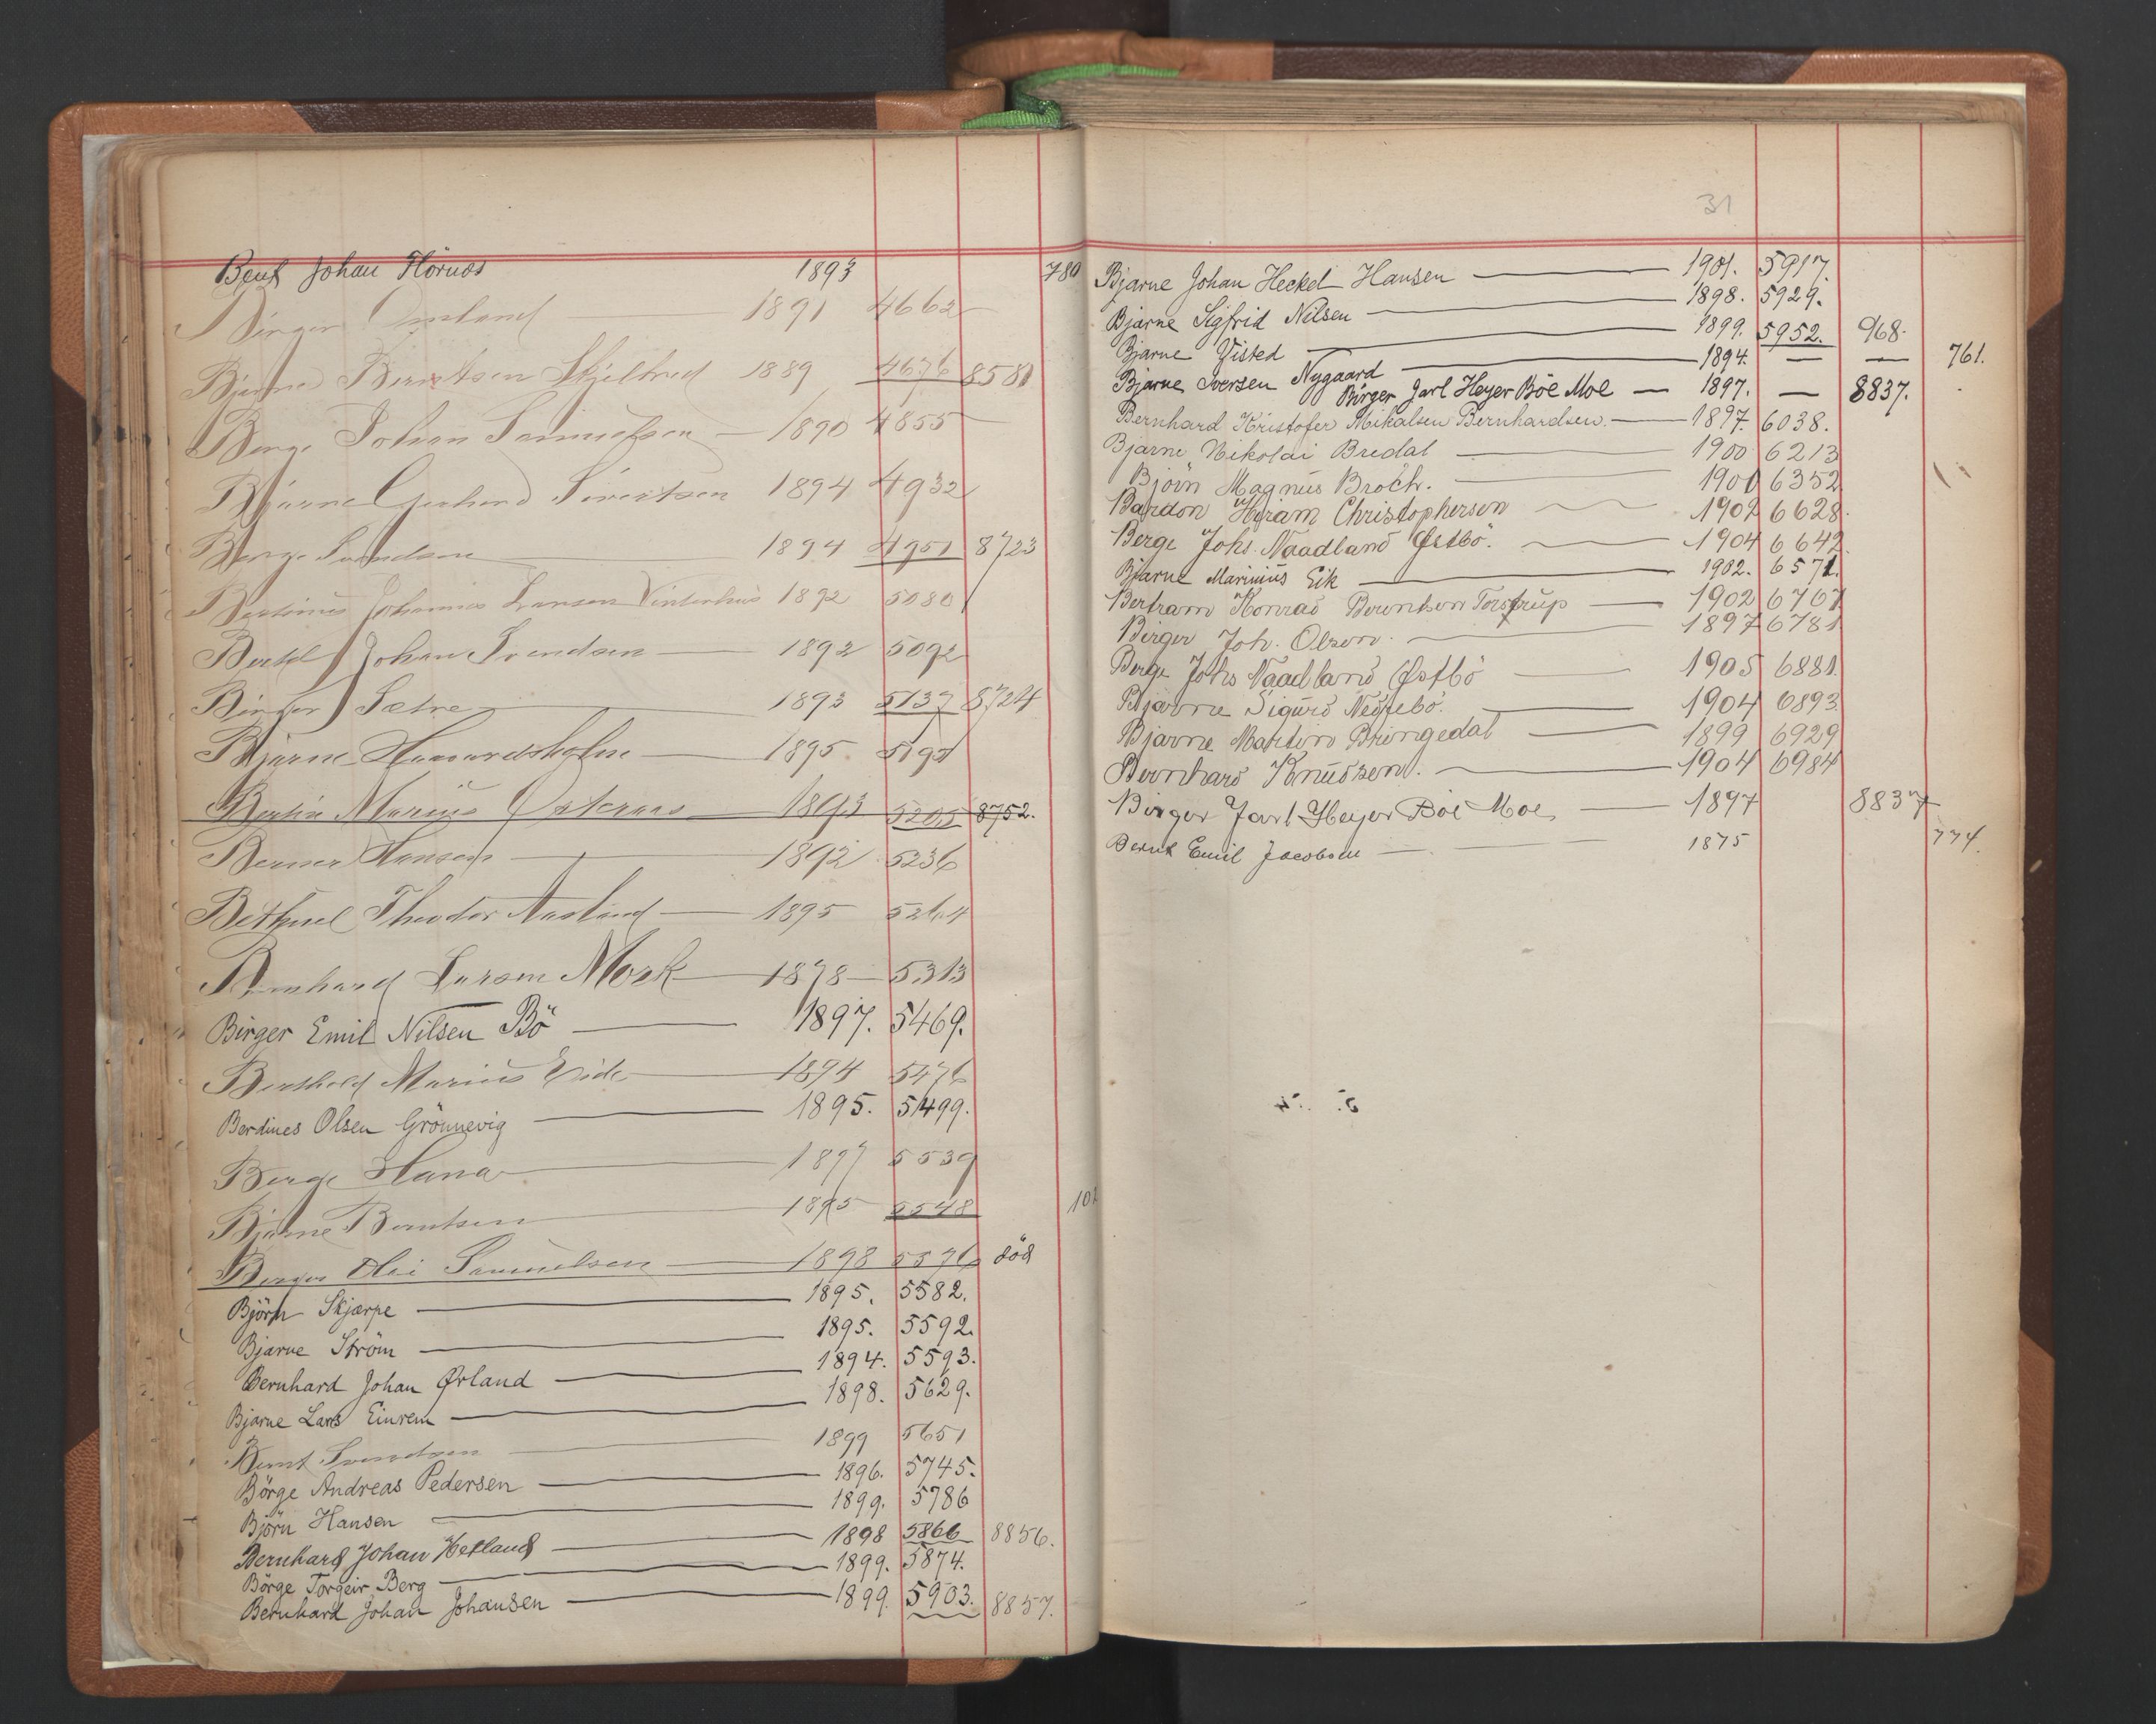 Bent Johan Hörnes 1893 780
Birger Omland 1891 4662
Bjarne Berntsen Skjeltred 1889 4676 8581
Berge Johan Samuelsen 1890 4855
Bjarne Gerhard Sivertsen 1894 4932
Berge Svendsen 1894 4951 8723
Bertinus Johannes Larsen Vinterhus 1892 5080
Bertel Johan Svendsen 1892 5092
Birger Sætre 1893 5137 8724
Bjarne 1895 5197
Bertin Marius Osteraas 1893 5205 8752.
Berner Hansen 1892 5236
Bethuel Theodor Aasland 1895 5264
Bernhard Larsen Mork 1878 5313
Birger Emil Nilsen Bö 1897. 5469.
Berthold Marius Eide 1894 5476
Berdines Olsen Grönnevig 1895. 5499.
Berge Hana 1897 5539
Bjarne Berntsen 1895 5548 102
Birger Olai Samuelsen 1898 5576 död
Björn Skjærpe 1895. 5582.
Bjarne Ström 1895. 5592.
Bernhard Johan Ørland 1894. 5593.
Bjarne Lars Einrem 1898. 5629.
Bernt Svendsen 1899 5651
Börge Andreas Pedersen 1896. 5745.
Björn Hansen 1899. 5786
Bernhard Johan Hetland 1898 5866 8856.
Börge Torgeir Berg 1899. 5874.
Bernhard Johan Johansen 1899. 5903. 8857.
31
Bjarne Johan Heckel Hansen 1901. 5917.
Bjarne Sigfrid Nilsen 1898. 5929.
Bjarne Visted 1899. 5952. 968.
Bjarne Iversen Nygaard 1894. — — 761.
Birger Jarl Heyer Böe Moe — 1897. — 8837.
Bernhard Kristofer Mikalsen Bernhardsen. 1897. 6038.
Bjarne Nikolai Bredal 1900 6213
Björn Magnus Broch. 1901 6352
Bardon Hiram Christophersen 1902 6628.
Berge Johs. Naadland Østbö. 1904 6642.
Bjarne Marinius Eik 1902. 6571.
Bertram Konrad Berentsen Torstrup 1902 6767
Birger Joh. Olsen. 1897 6781
Berge Johs Naadland Østbö 1905 6881.
Bjarne Sigurd Nedrebö. 1904 6893.
Bjarne Martin Bringedal 1899 6929
Bernhard Knudsen. 1904 6984
Birger Jarl Heyer Böe Moe 1897 8837
Bernt Emil Jacobsen 1875 774.